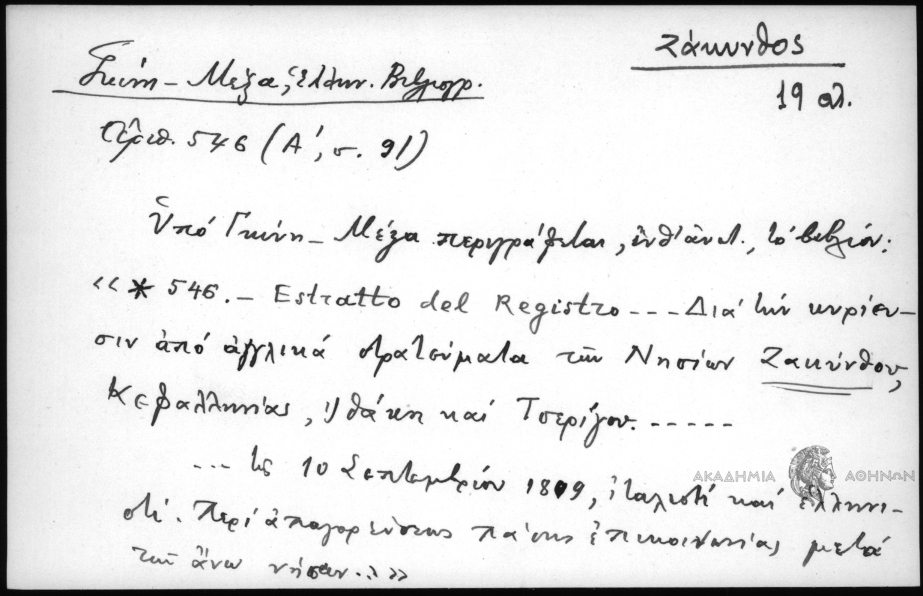 Ζάκυνθος
Γκίνη - Μέξα, Ἑλλην. Βιβλιογρ.
19 αἰ.
Ἀριθ. 546 (Α΄, σ. 91)
Ὑπό Γκίνη - Μέξα περιγράφεται, ἐνθ' ἀνωτ., τό βιβλίον:
«* 546. - Estratto del Registro --- Διά τήν κυρίευ-
σιν ἀπό ἀγγλικά στρατεύματα τῶν Νησίων Ζακύνθου,
Κεφαλληνίας, Ἰθάκη καί Τσερίγου. -----
--- τῆς 10 Σεπτεμβρίου 1809, ἰταλιστί καί ἑλληνι-
στί. Περί ἀπαγορεύσεως πάσης ἐπικοινωνίας μετά
τῶν ἄνω νήσων..»
ΑΚΑΔΗΜΙΑ ΑΘΗΝΩΝ